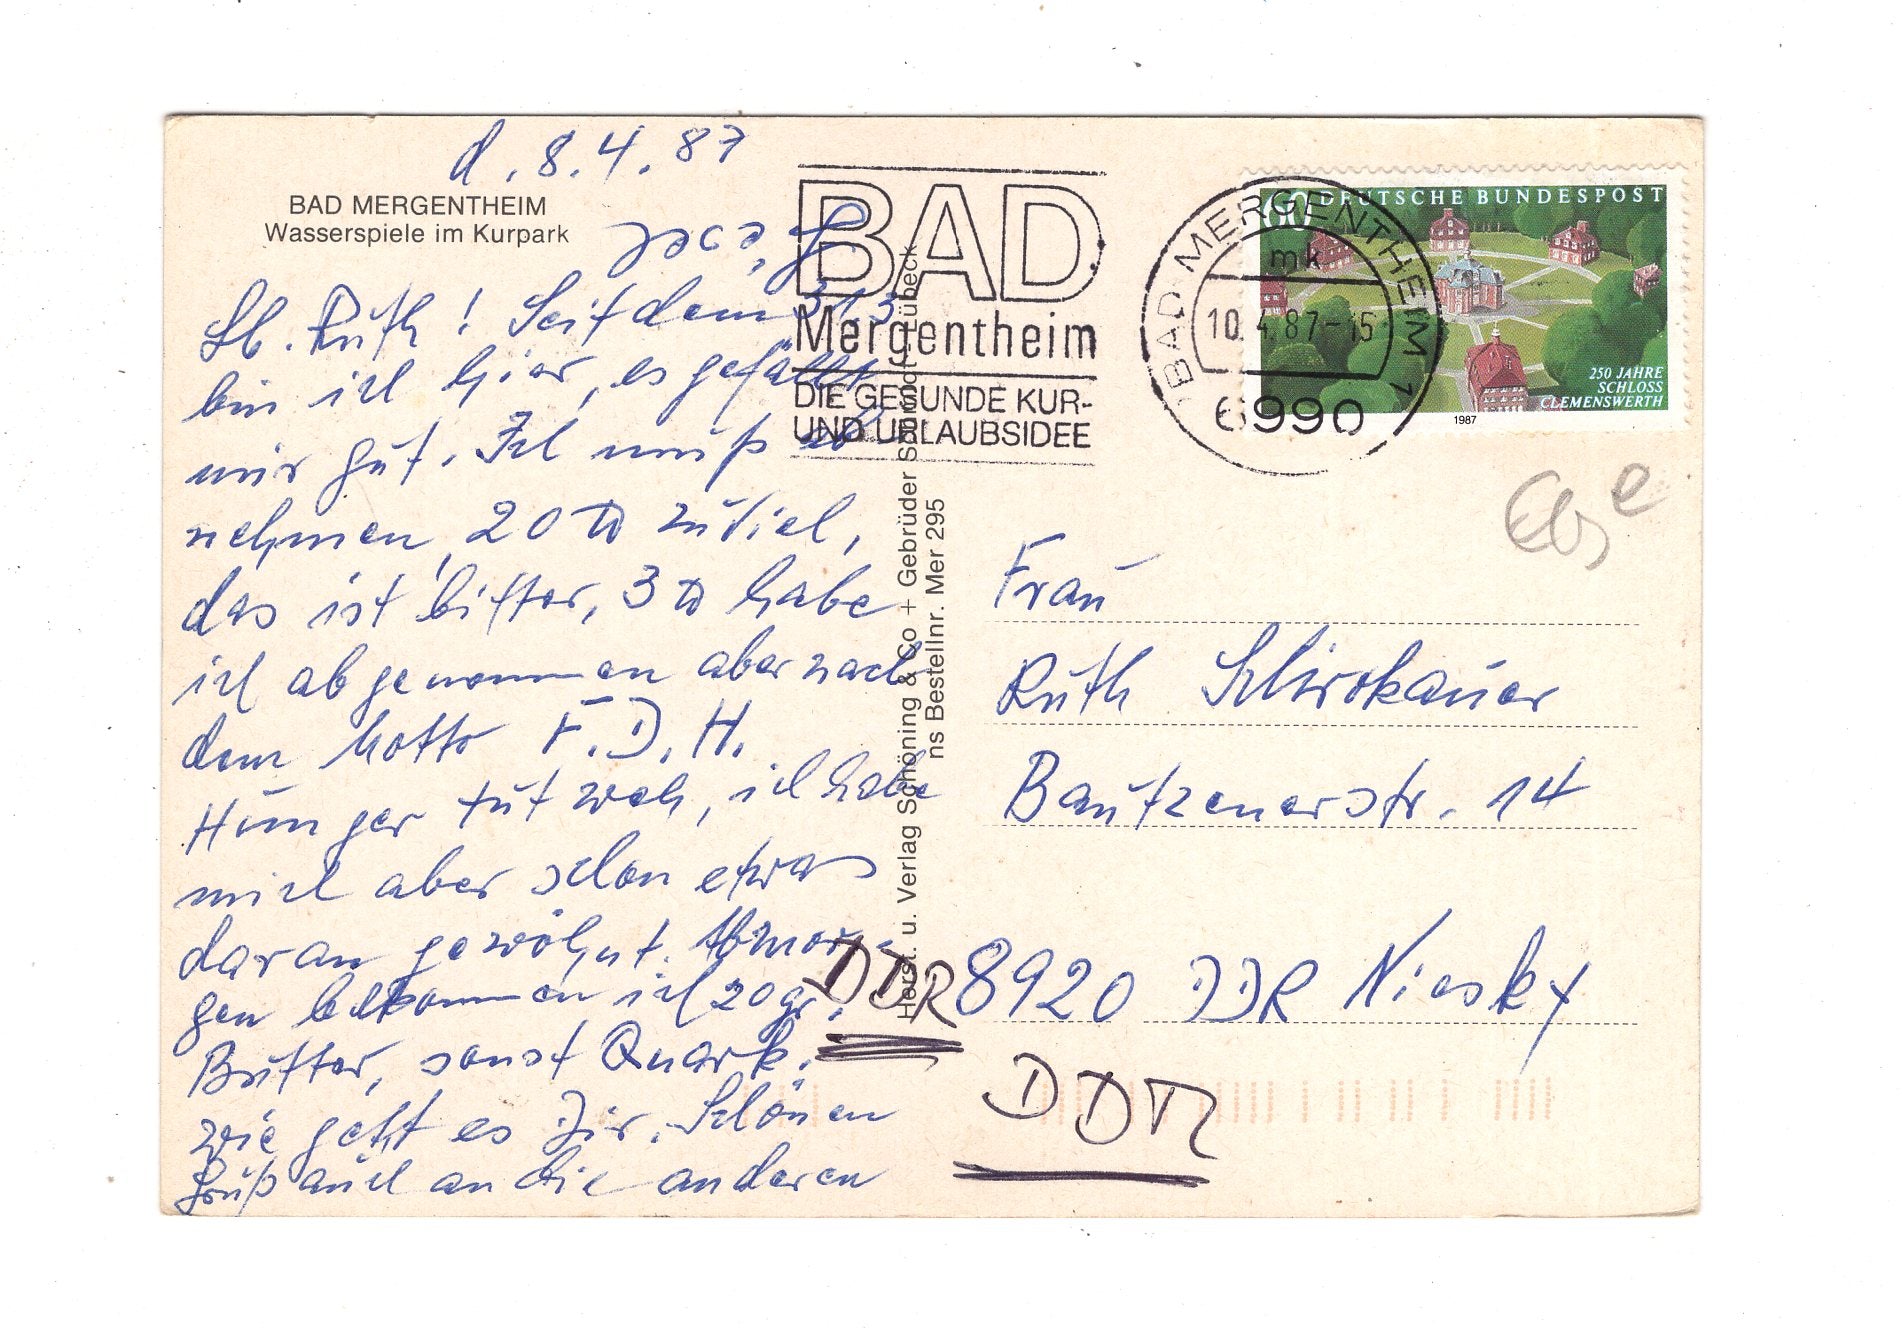 d. 8.4.87
BAD MERGENTHEIM
Wasserspiele im Kurpark
Lb. Ruth! Seit dem 31.3
bin ich hier, es gefällt
mir gut. Ich muß ab
nehmen, 20 ℔ zuviel,
das ist bitter, 3 ℔ habe
ich abgenommen aber nach
dem Motto F.D.H.
Hunger tut weh, ich habe
mich aber schon etwas
daran gewöhnt. Mor-
gen bekommen ich 20 gr.
Butter, sonst Quark.
wie geht es Dir. Schönen
Gruß auch an die anderen
BAD
Mergentheim
DIE GESUNDE KUR-
UND URLAUBSIDEE
BAD MERGENTHEIM 1
mk
10.4.87-15
6990
60 DEUTSCHE BUNDESPOST
250 JAHRE
SCHLOSS
CLEMENSWERTH
1987
Herst. u. Verlag Schöning & Co + Gebrüder Schmidt, Lübeck
ns Bestellnr. Mer 295
Frau
Ruth Schirokauer
Bautzenerstr. 14
DDR
8920 DDR Niesky
DDR